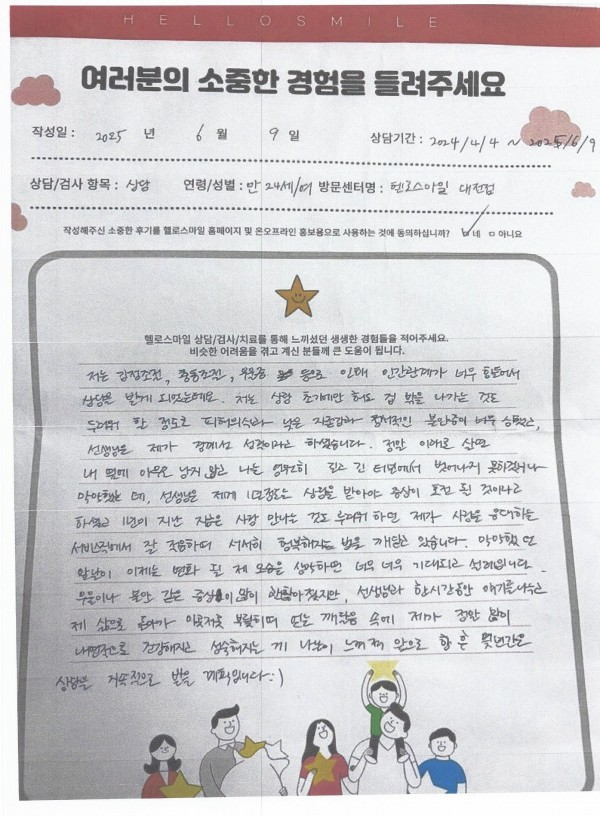 HELLOSMILE
여러분의 소중한 경험을 들려주세요
작성일 : 2025 년 6 월 9 일 상담기간 : 2024/4/4 ~ 2025/6/9
상담/검사 항목 : 상담 연령/성별 : 만 24세/여 방문센터명 : 헬로스마일 대전점
작성해주신 소중한 후기를 헬로스마일 홈페이지 및 온오프라인 홍보용으로 사용하는 것에 동의하십니까? 네 아니요
헬로스마일 상담/검사/치료를 통해 느끼셨던 생생한 경험들을 적어주세요.
비슷한 어려움을 겪고 계신 분들께 큰 도움이 됩니다.
저는 감정조절, 충동조절, 우울증 등으로 인해 인간관계가 너무 힘들어서
상담을 받게 되었는데요. 저는 상담 초기에만 해도 집 밖을 나가는 것도
두려워 할 정도로 피해의식과 낮은 자존감과 불안증이 너무 심했고,
선생님은 제가 경계선 성격이라고 하셨습니다. 정말 이대로 살면
내 옆에 아무도 남지 않고 나는 영원히 길고 긴 터널에서 벗어나지 못하겠구나
막막했는데, 선생님은 제게 상담을 받아야 증상이 호전 될 것이라고
하셨고 1년이 지난 지금은 사람 만나는 것도 두려워 하던 제가 사람을 응대하는
서비스직에서 잘 적응하며 서서히 행복해지는 법을 깨닫고 있습니다. 막막했던
앞날이 이제는 변화 될 제 모습을 생각하면 너무 너무 기대되고 설레입니다.
우울이나 불안 같은 증상이 많이 선생님과 한시간동안 얘기를 나누고
제 삶으로 돌아가 이곳저곳 부딪히며 얻는 깨달음 속에 제가 정말 많이
내면적으로 건강해지고 성숙해지는 게 나날이 느껴져 앞으로 몇년간은
상담을 지속적으로 받을 계획입니다 :)